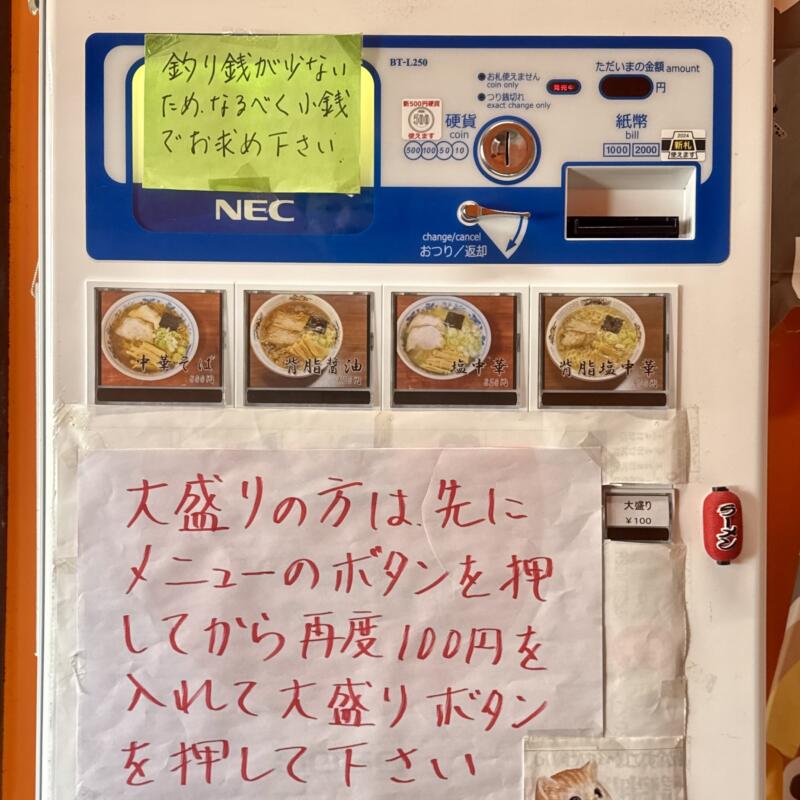 釣り銭が少ない
ため、なるべく小銭
でお求め下さい
NEC
BT-L250
●お札使えません
coin only
●つり銭切れ
exact change only
発売中
ただいまの金額 amount
円
新500円硬貨
500
使えます
硬貨
coin
500 100 50 10
紙幣
bill
1000 2000
2024
新札
使えます
change/cancel
おつり/返却
中華そば
背脂醤油
塩中華
背脂塩中華
大盛り
¥100
ラーメン
大盛りの方は、先に
メニューのボタンを押
してから再度100円を
入れて大盛りボタン
を押して下さい